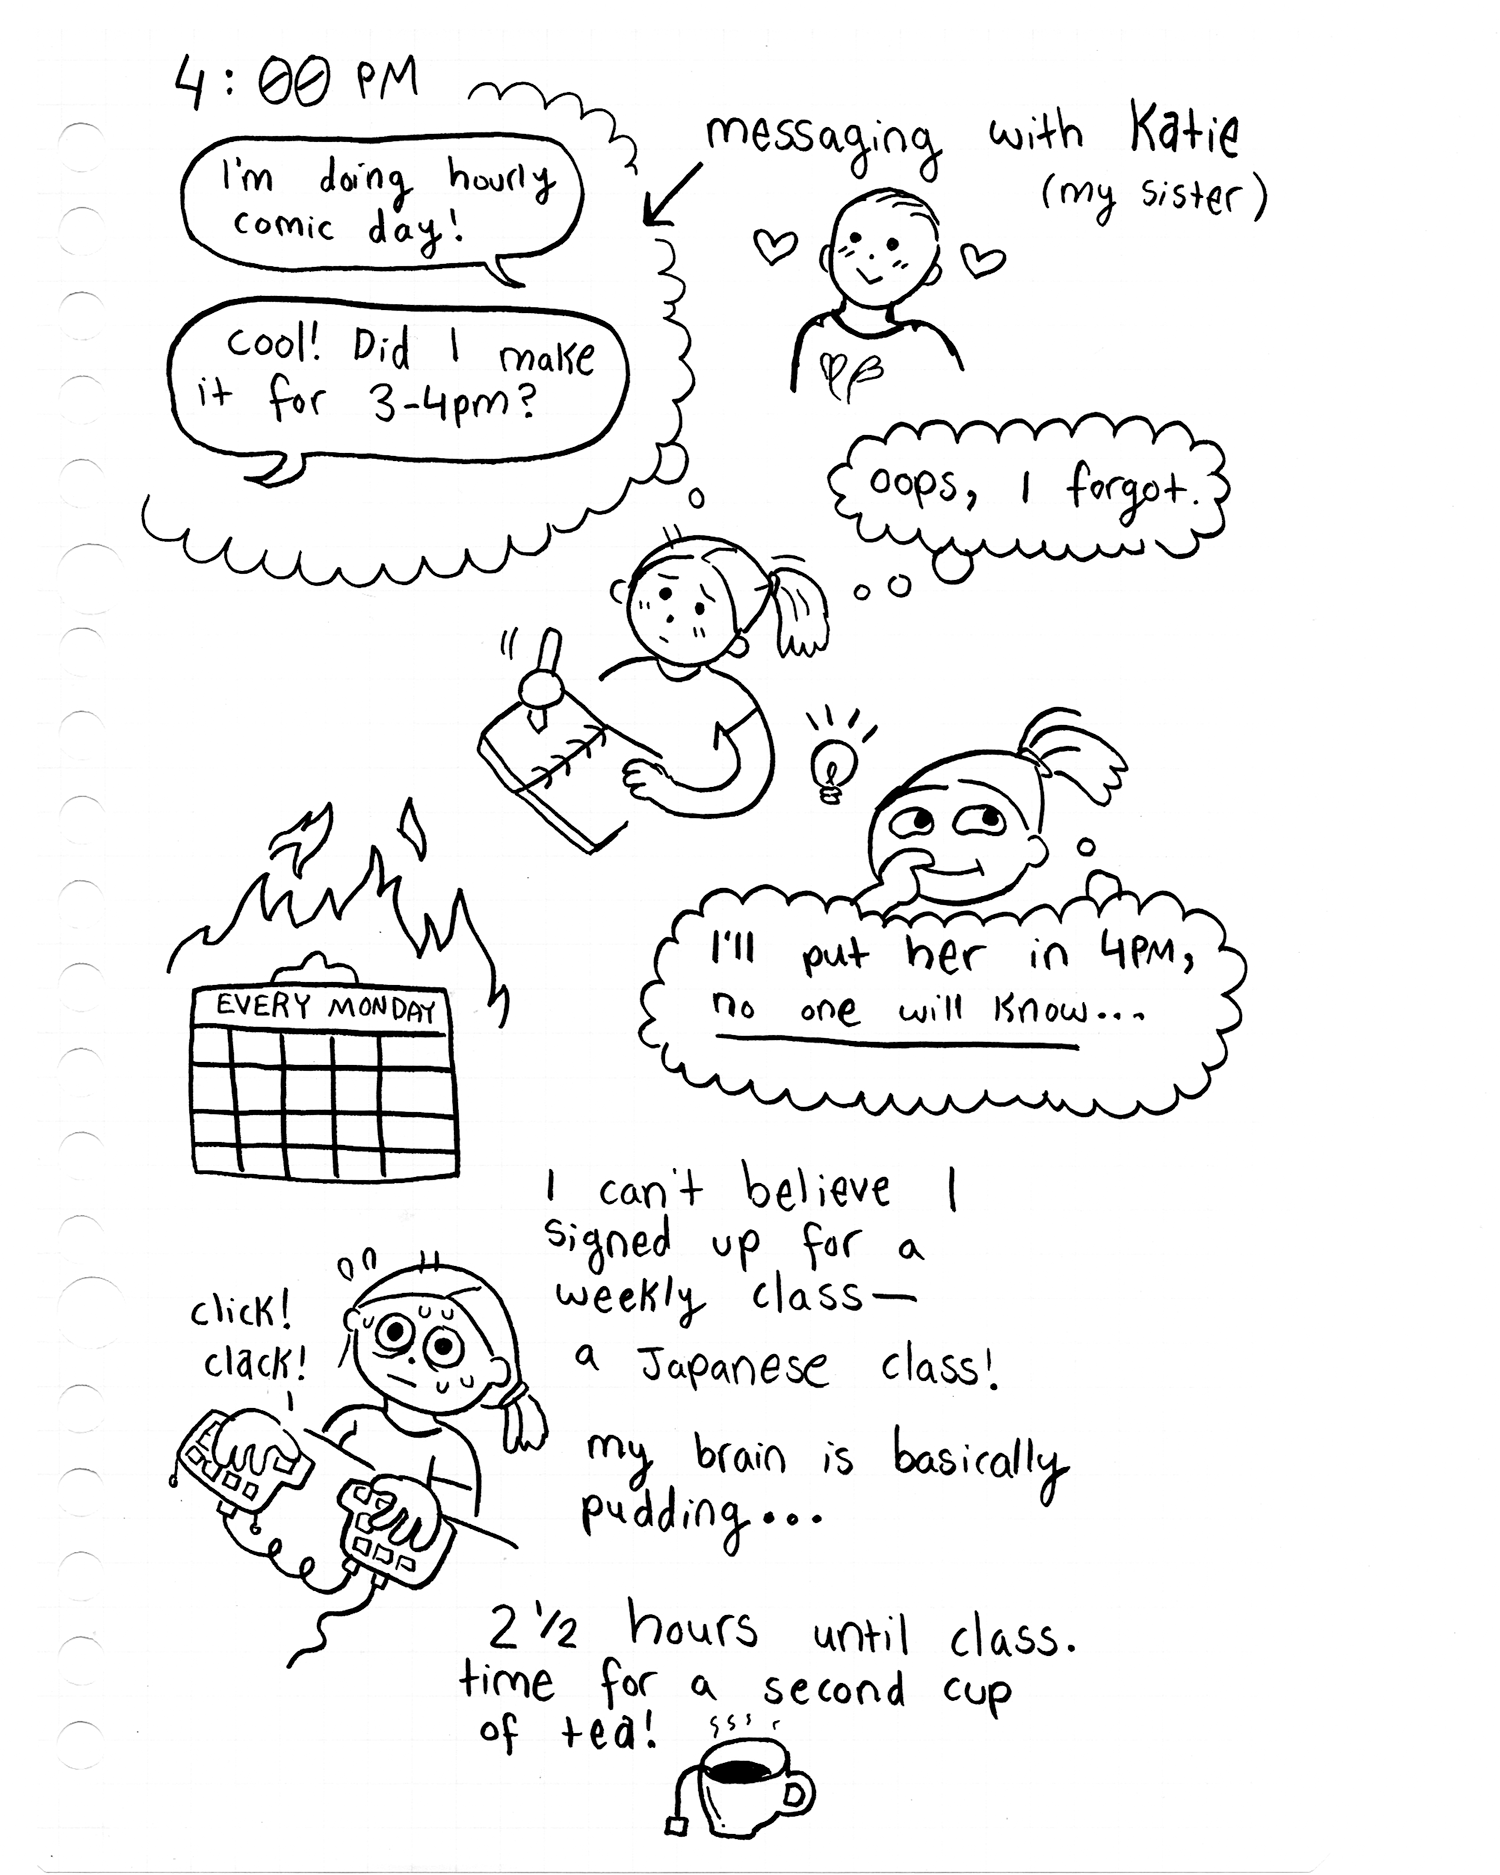 4:00 PM
I'm doing hourly
comic day!
cool! Did I make
it for 3-4pm?
messaging with Katie
(my sister)
oops, I forgot.
I'll put her in 4PM,
no one will know...
EVERY MONDAY
I can't believe I
signed up for a
weekly class—
a Japanese class!
click!
clack!
my brain is basically
pudding...
2 1/2 hours until class.
time for a second cup
of tea!